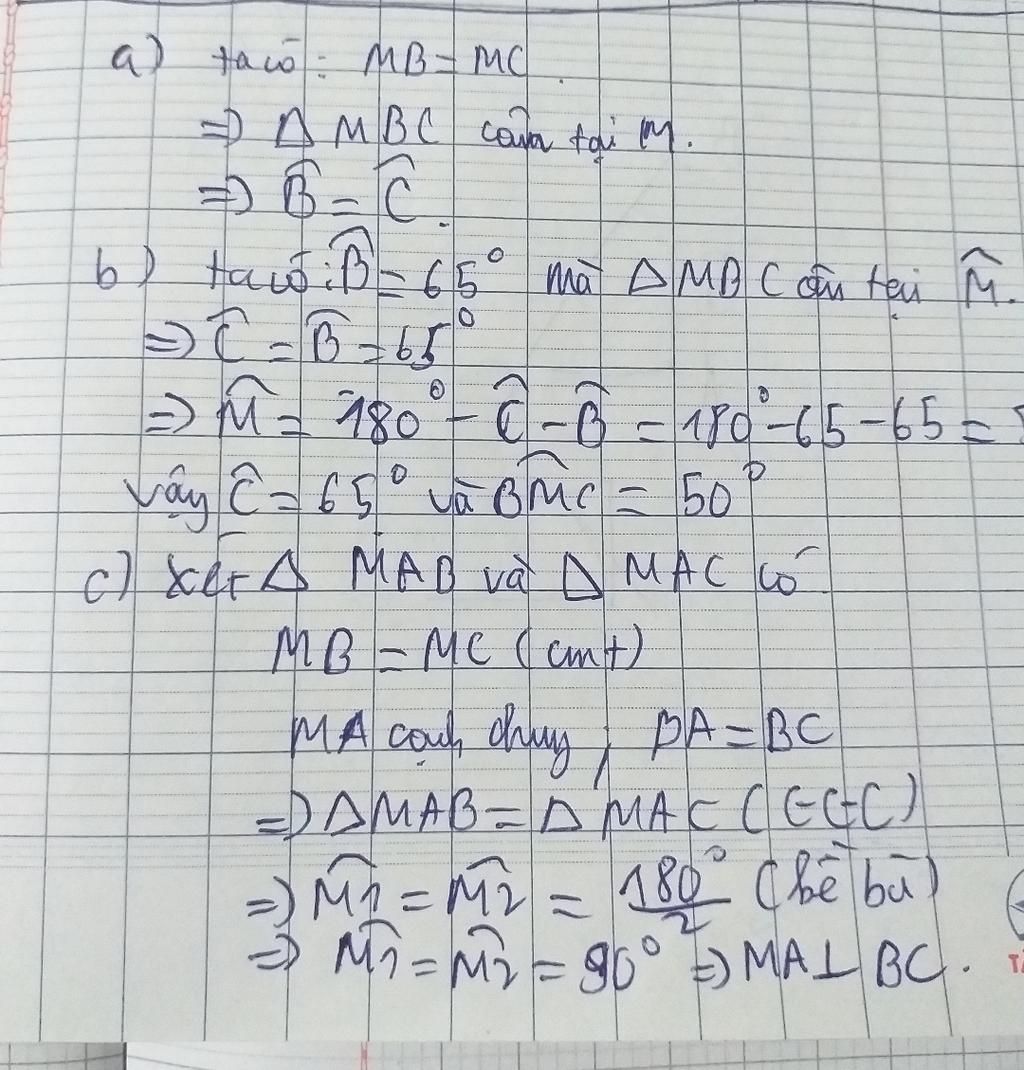 a) ta có: MB = MC.
=> Δ MBC cân tại M.
=> B̂ = Ĉ.
b) ta có: B̂ = 65° mà Δ MBC cân tại M̂.
=> Ĉ = B̂ = 65°
=> M̂ = 180° - Ĉ - B̂ = 180° - 65 - 65 =
vậy Ĉ = 65° và BM̂C = 50°
c) xét Δ MAB và Δ MAC có
MB = MC (cmt)
MA cạnh chung, BA = BC
=> ΔMAB = Δ MAC (C-C-C)
=> M̂1 = M̂2 = 180°/2 (kề bù)
=> M̂1 = M̂2 = 90° => MA ⊥ BC.